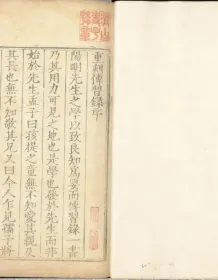 重刻傳習錄序
陽明先生之學以致良知為宗而傳習錄一書
乃其用力可見之地也是學也發於先生而非
始於先生孟子曰孩提之童無不知愛其親及
其長也無不知敬其兄又曰今人乍見孺子將